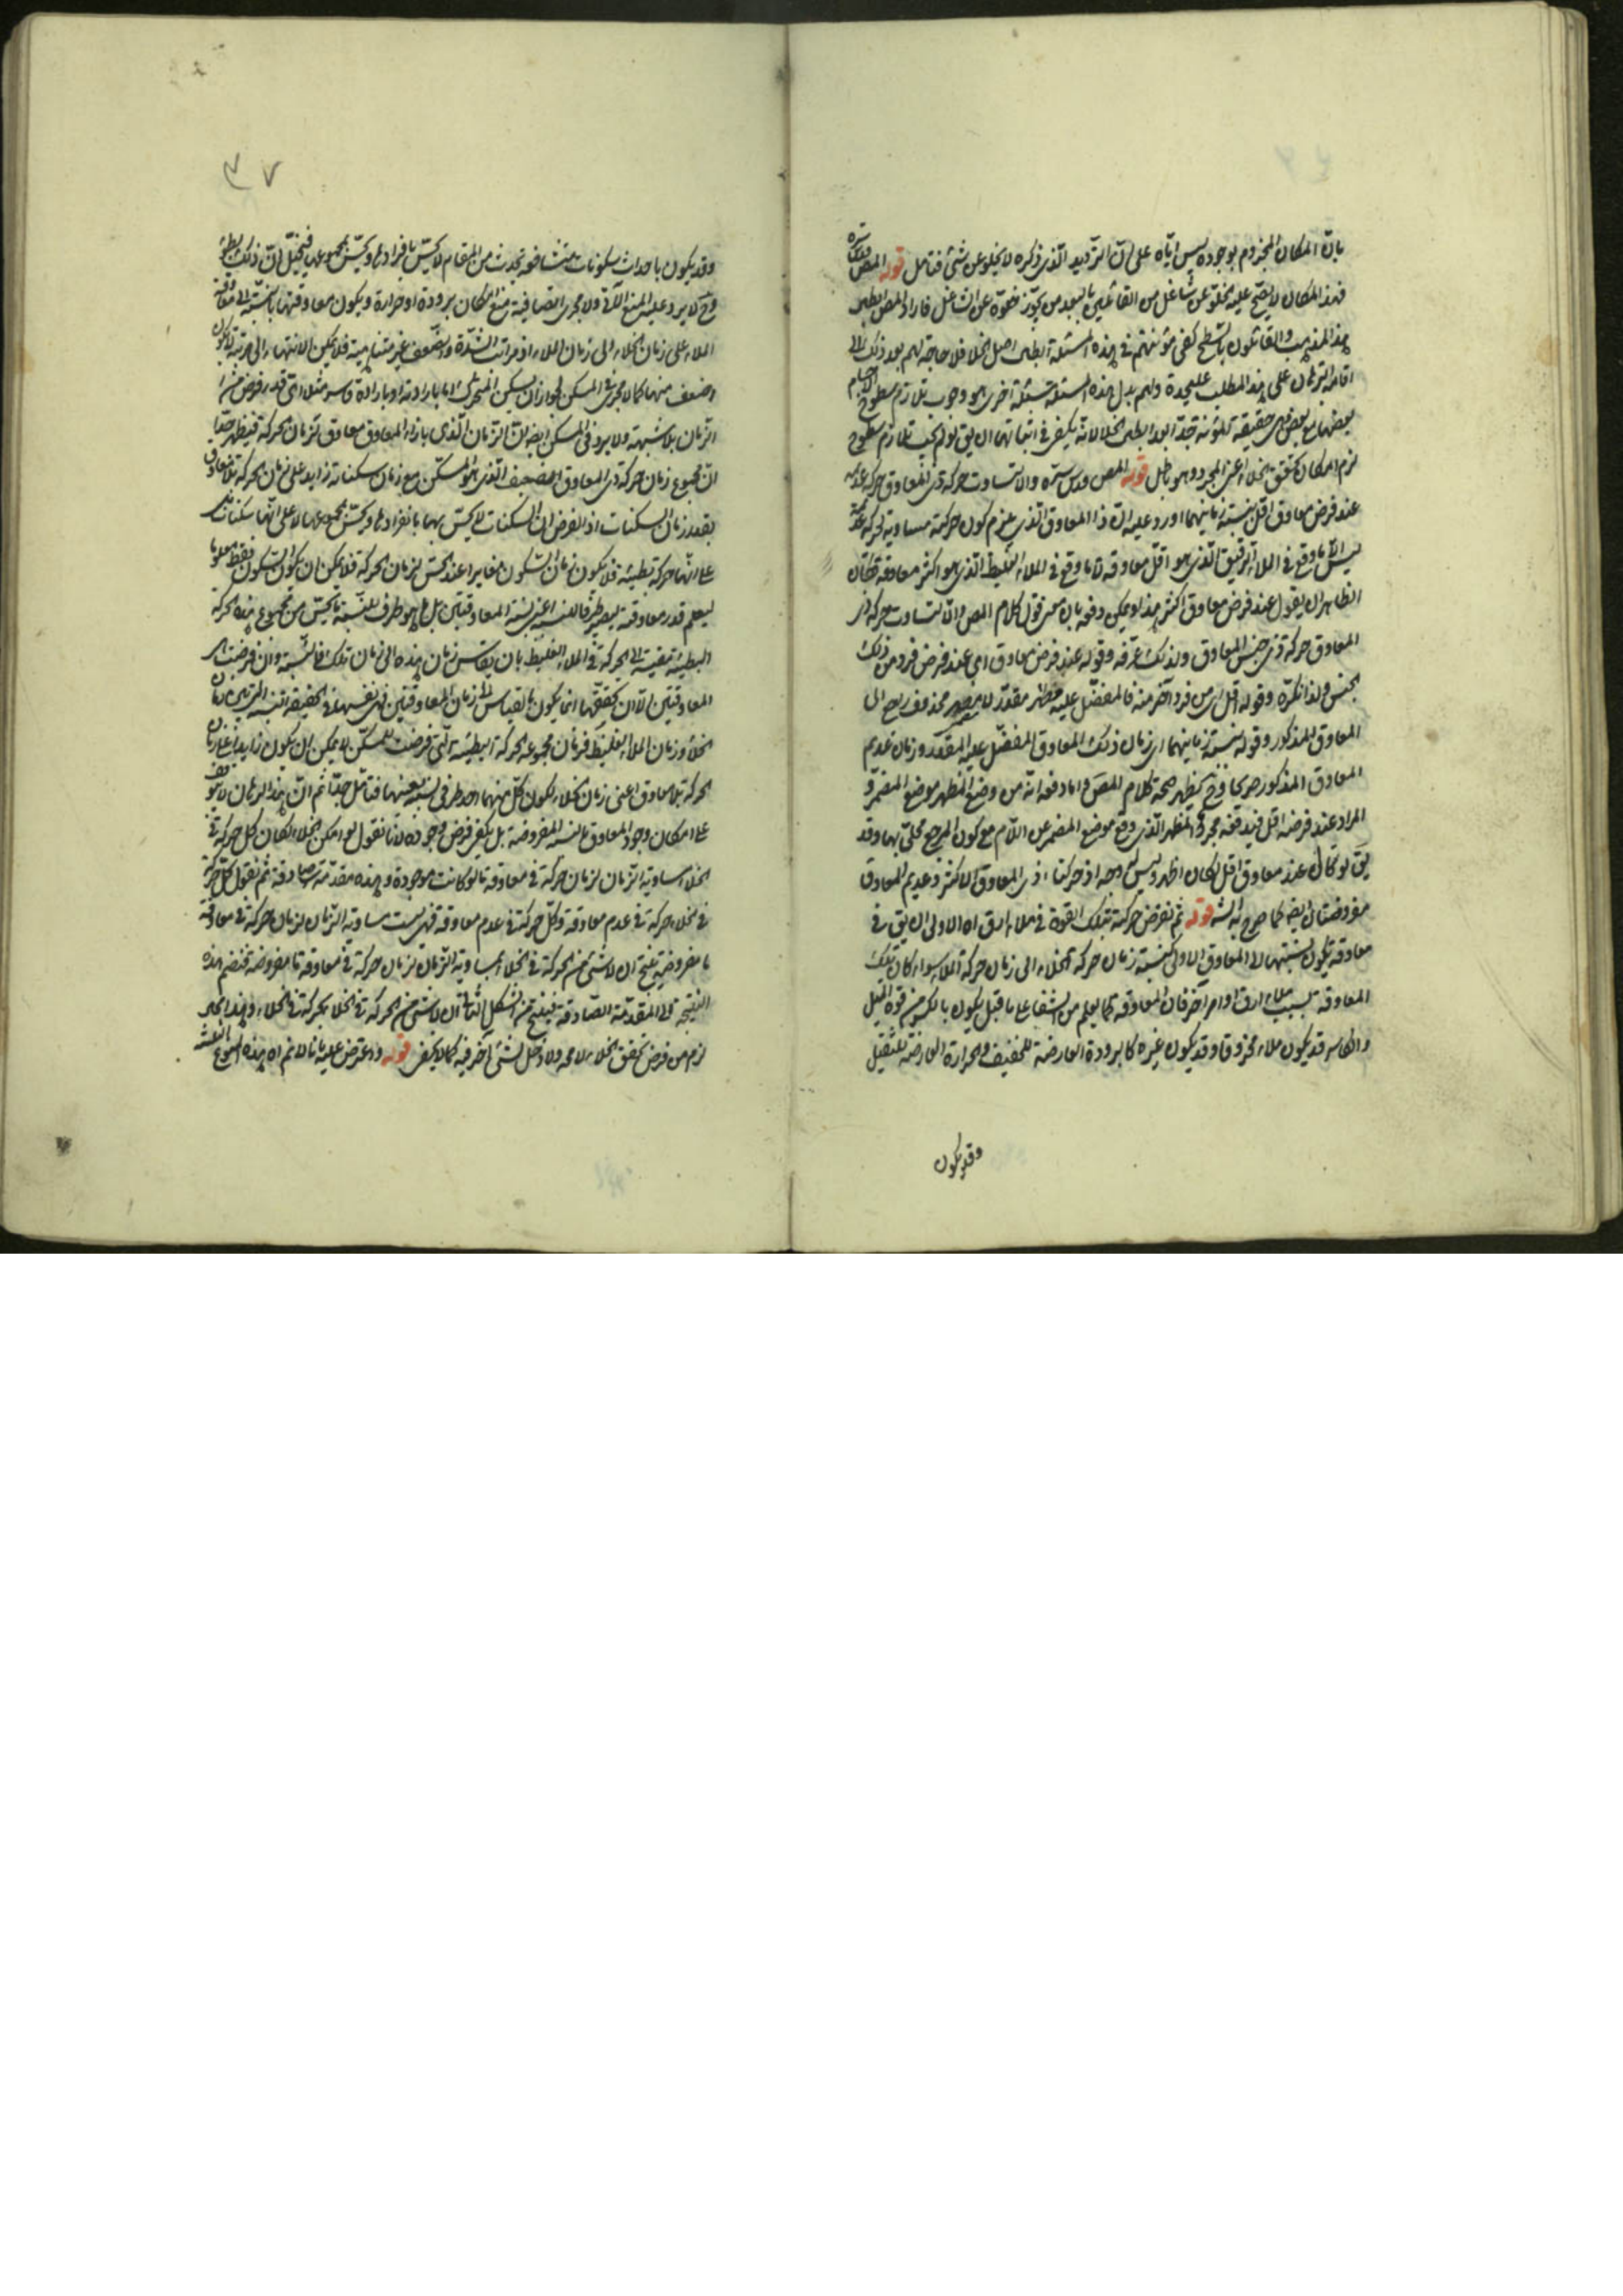 بان المكان المجزوم بوجوده ليس اياه على ان الترديد الذى ذكره لا يخلو عن شئ فتامل قوله المص قدس سره
فهذا المكان لا يصح عليه الخلو عن شاغل من القائلين بالبعد من يجوز خلوه عن الشاغل فاراد المص ابطال
هذا المذهب والقائلون بالسطح كفى مؤنتهم فى هذه المسئلة ابطال اصل الخلا فلا حاجة لهم بعد ذلك الى
اقامة البرهان على هذا المطلب عليحدة ولهم بدل هذه المسئلة مسئلة اخرى هو وجوب تلازم سطوح الاجسام
بعضها مع بعض حقيقة المؤنة جدا بعد ابطال الخلا لانه يكفى فى اثباتها ان يق لو لم يجب تلازم سطوح
لزم امكان تحقق الخلاء اعنى المجرد وهو باطل قوله المص قدس سره والا لتساوت حركة ذى المعاوق حركة عديمه
عند فرض معاوق اقل بنسبة زمانيهما اورد عليه ان ذا المعاوق الذى يلزم كون حركته مساوية لحركة عديمه
ليس الا ما وقع فى الملاء الرقيق الذى هو اقل معاوقة لا ما وقع فى الملاء الغليظ الذى هو اكثر معاوقة فكان
الظاهر ان يقول عند فرض معاوق اكثر هذا ويمكن دفعه بان معنى قول كلام المص والا لتساوت حركة ذى
المعاوق حركة ذى جنس المعاوق ولذلك عرفه وقوله عند فرض معاوق اى عند فرض فرد من ذلك
الجنس ولذا نكره وقوله اقل اى من فرد آخر منه فالمفضل عليه مقدر لا محذوف راجع الى
المعاوق المذكور وقوله بنسبة زمانيهما اى زمان ذلك المعاوق المفضل عليه المقدر وزمان عديم
المعاوق المذكور صريحا وح يظهر صحة كلام المص واما دفعه انه من وضع المظهر موضع المضمر و
المراد عند فرضه اقل فيدفعه مجرد المظهر الذى وقع موضع المضمر عن اللام مع كون المرجع محلى بها وقد
يق لو قال عند معاوق اقل لكان اظهر وليس له وجه اذ حركتا ذى المعاوق الاكثر وعديم المعاوق
مفروضتان ايضا كما صرح به الشه قوله ثم نفرض حركته بتلك القوة فى ملاء ارق اه الاولى ان يق فى
معاوقة تكون نسبتها الى المعاوق الاولى كنسبة زمان حركة الخلاء الى زمان حركة الملاء سواء كان تلك
المعاوقة بسبب ملاء ارق او امر آخر فان المعاوقة كما يعلم من الشفا على ما قيل يكون بالكسر من قوة الميل
والكاسر قد يكون ملاء مخروقا وقد يكون غيره كالبرودة العارضة للخفيف والحرارة العارضة للثقيل
وقد يكون
٣٧
وقد يكون باحداث سكونات متشافعة تحدث من المقام لا يحس بافرادها ويحس بمجموعها فيتخيل ان ذلك بطؤ
وح لا يرد عليه المنع الآتى ولا يجرى المضايقة منع امكان برودة او حرارة ويكون معاوقتها بالنسبة الى معاوقة
الملاء على زمان الخلاء الى زمان الملاء اذ مراتب الشدة والضعف غير متناهية فلا يمكن الانتهاء الى مرتبة لا يكون
اضعف منها كما لا يجرى فى المسكن لجواز ان يسكن المتحرك اما بارادته او بارادة قاسر مثلا اى قدر فرض من
الزمان بلا شبهة ولا يرد فى المسكن ايضا ان الزمان الذى بازاء المعاوق معاوق لزمان الحركة فيظهر جدا
ان مجموع زمان حركة ذى المعاوق الضعيف الذى هو المسكن مع زمان سكناته زايد على زمان الحركة بلا معاوق
بقدر زمان السكنات اذ الفرض ان السكنات لا يحس بها بانفرادها ويحس بمجموعها لا على انها سكنات بل
على انها حركة بطيئة فلا يكون زمان السكون مغايرا عند الحس لزمان الحركة فلا يمكن ان يكون السكون فقط معلوما
ليعلم قدر معاوقته ليصير طرفا للنسبة اعنى نسبة المعاوقتين بل ما هو طرف للنسبة ما يحس من مجموع هذه الحركة
البطيئة مقيسة الى الحركة فى الملاء الغليظ بان يقاس زمان هذه الى زمان تلك فالنسبة وان فرضت بين
المعاوقتين الا ان تحققها انما يكون بالقياس الى زمان المعاوقتين فهى نفسها فى الحقيقة النسبة التى بين زمان
الخلاء وزمان الملاء الغليظ فزمان مجموعه الحركة البطيئة التى فرضت للمسكن لا يمكن ان يكون زايدا على زمان
الحركة بلا معاوق اعنى زمان الخلاء لكون كل منهما احد طرفى نسبة بعينها فتامل جدا ثم ان هذا البرهان لا يتوقف
على امكان وجود المعاوق بالنسبة المفروضة بل يكفى فرض وجوده لانا نقول لو امكن الخلاء لكان كل حركة فى
الخلاء مساوية الزمان لزمان حركة فى معاوقة ما لو كانت موجودة وهذه مقدمة صادقة ثم نقول كل حركة
فى الخلاء حركة فى عدم معاوقة وكل حركة فى عدم معاوقة فهى ليست مساوية الزمان لزمان حركة فى معاوقة
ما مفروضة ينتج ان لا شئ من الحركة فى الخلاء بمساوية الزمان لزمان حركة فى معاوقة ما مفروضة فنضم هذه
النتيجة الى المقدمة الصادقة فينتج من الشكل الثانى ان لا شئ من الحركة فى الخلا بحركة فى الخلاء وهذا المحال
لزم من فرض تحقق الخلاء لا محة ولا دخل لشئ آخر فيه كما لا يخفى قوله واعترض عليه بانا لا نم اه هذه المنوع